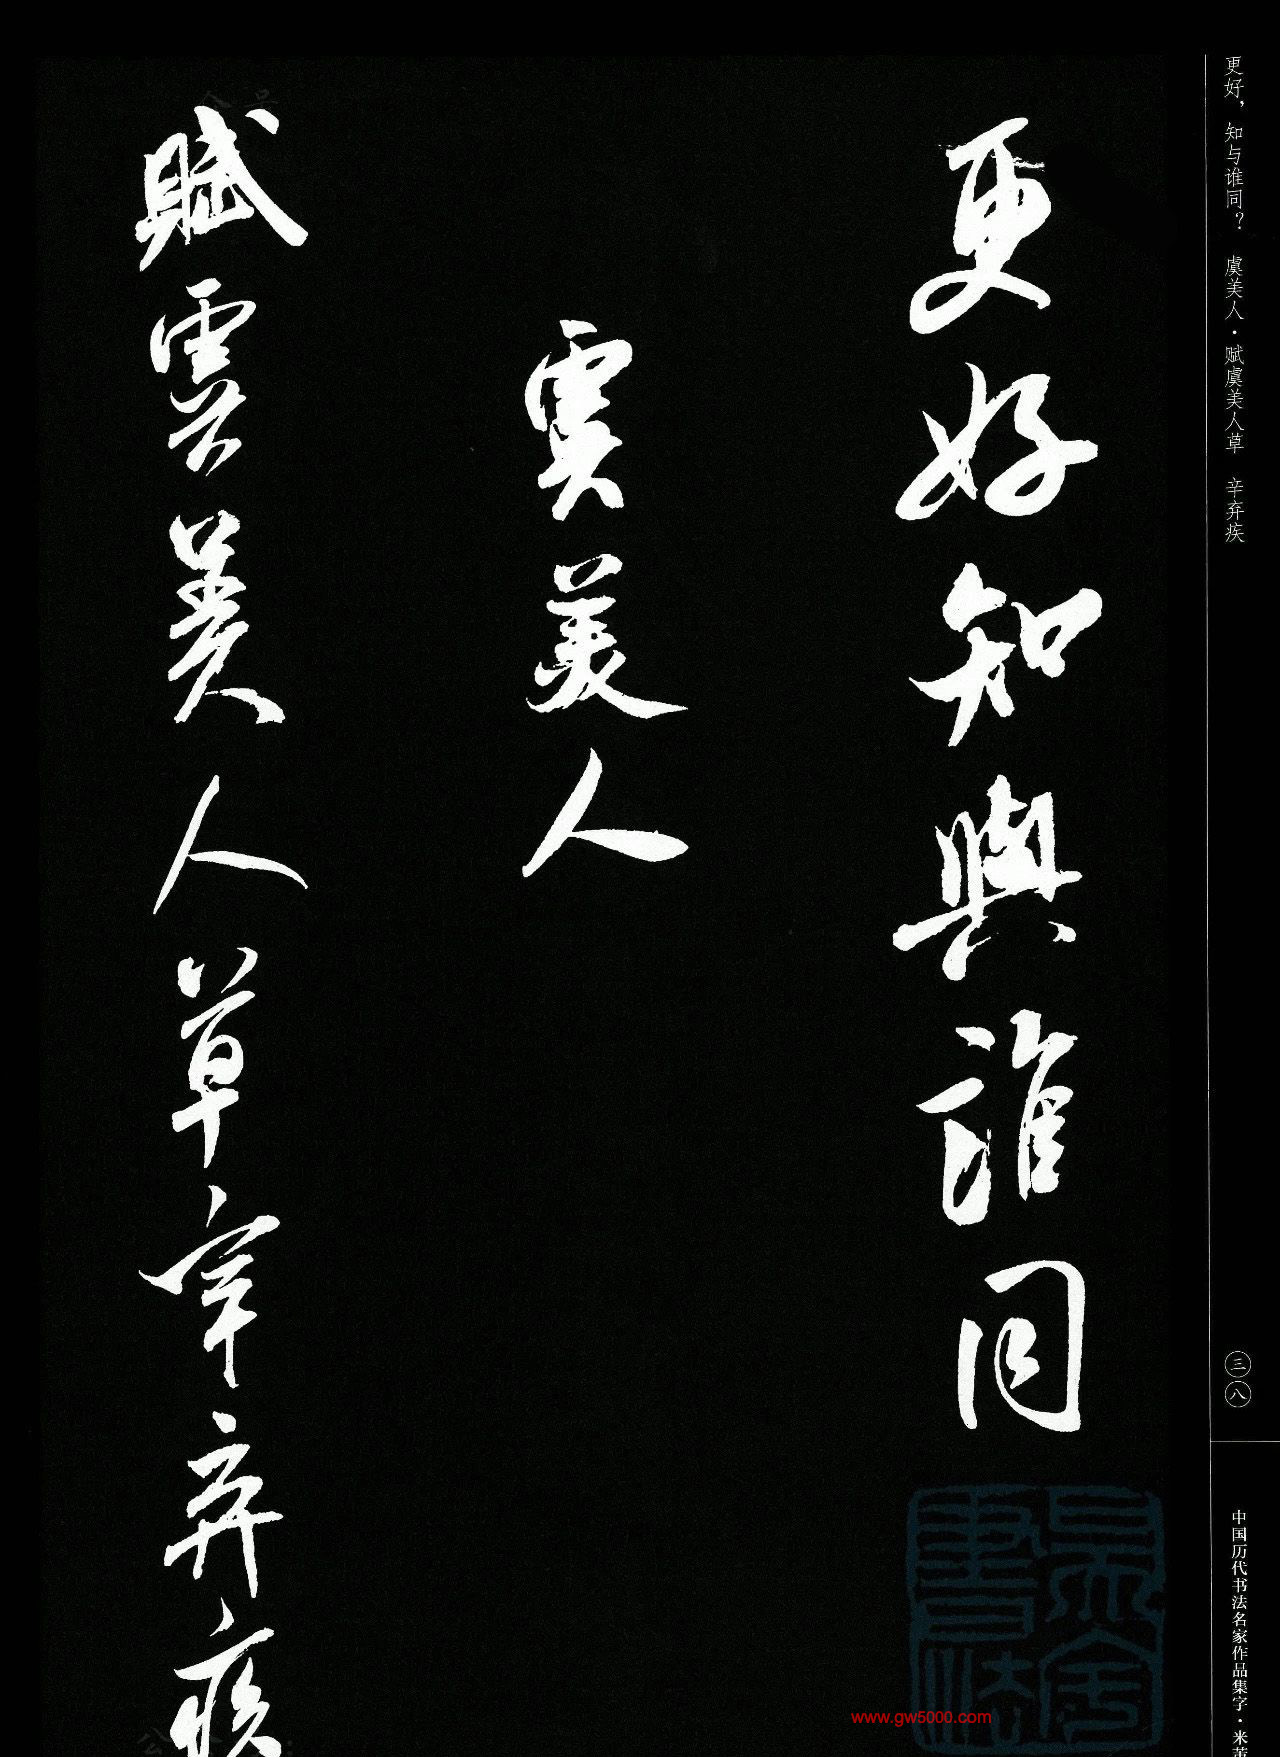 更好，知与谁同？ 虞美人·赋虞美人草 辛弃疾
三八
中国历代书法名家作品集字·米芾
更好知與誰同
虞美人
賦虞美人草辛弃疾
www.gw5000.com